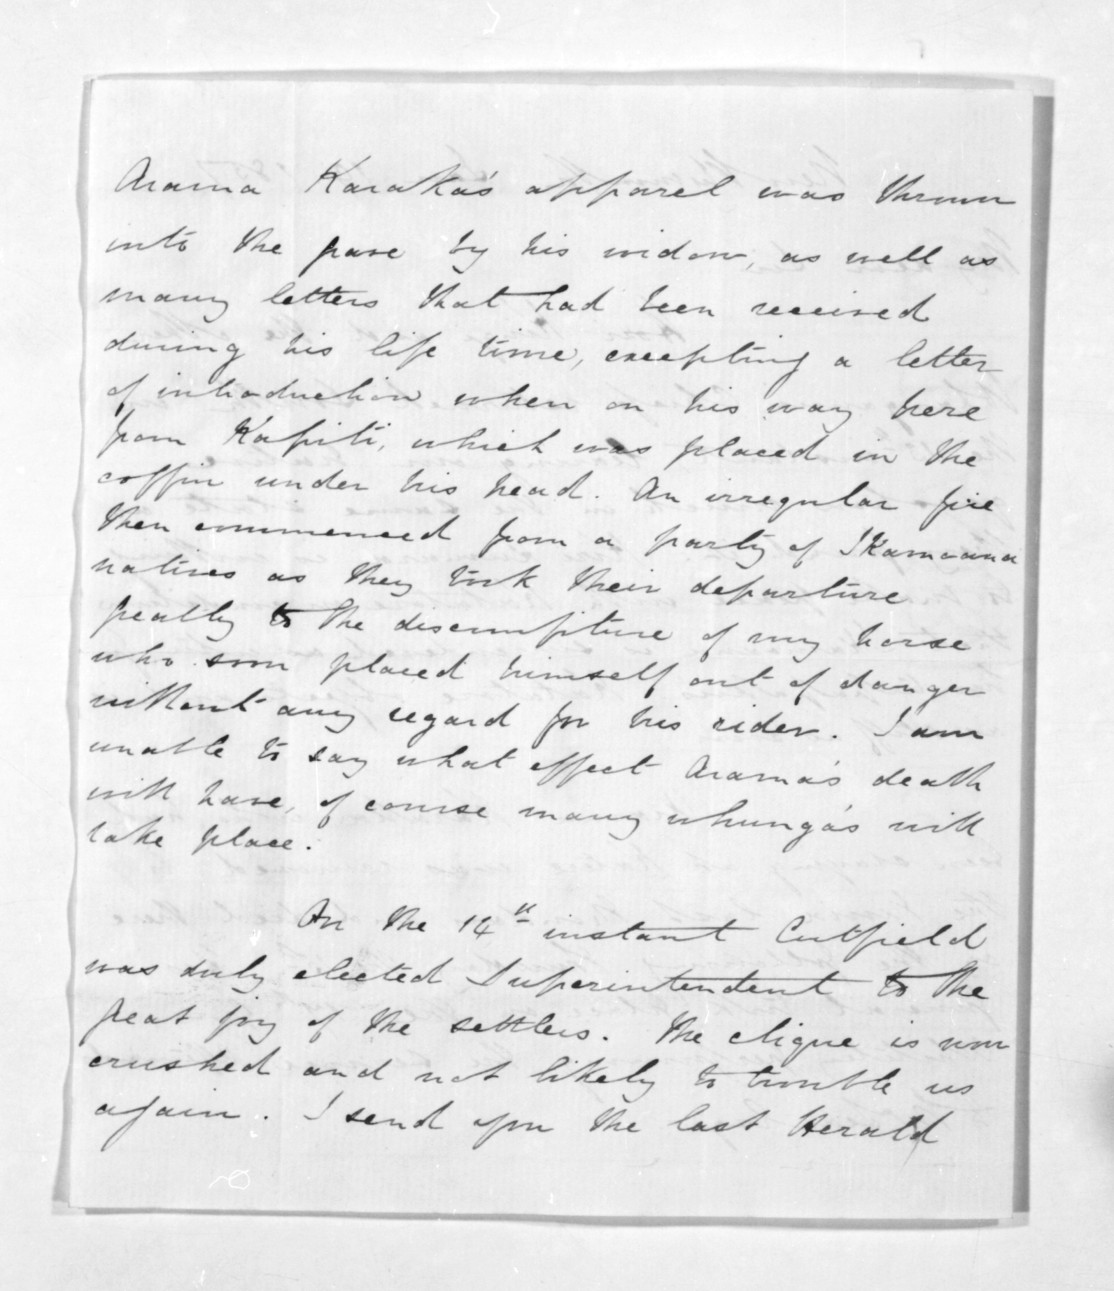 Arama Karaka's apparel was thrown
into the grave by his widow, as well as
many letters that had been received
during his life time, excepting a letter
of introduction when on his way here
from Kapiti, which was placed in the
coffin under his head. An irregular fire
then commenced from a party of Ikamoana
natives as they took their departure
greatly to the discomfiture of my horse
who soon placed himself out of danger
without any regard for his rider. I am
unable to say what effect Arama's death
will have, of course many uhunga's will
take place.
On the 14th instant Cutfield
was duly elected Superintendent to the
great joy of the settlers. The clique is now
crushed and not likely to trouble us
again. I send you the last Herald